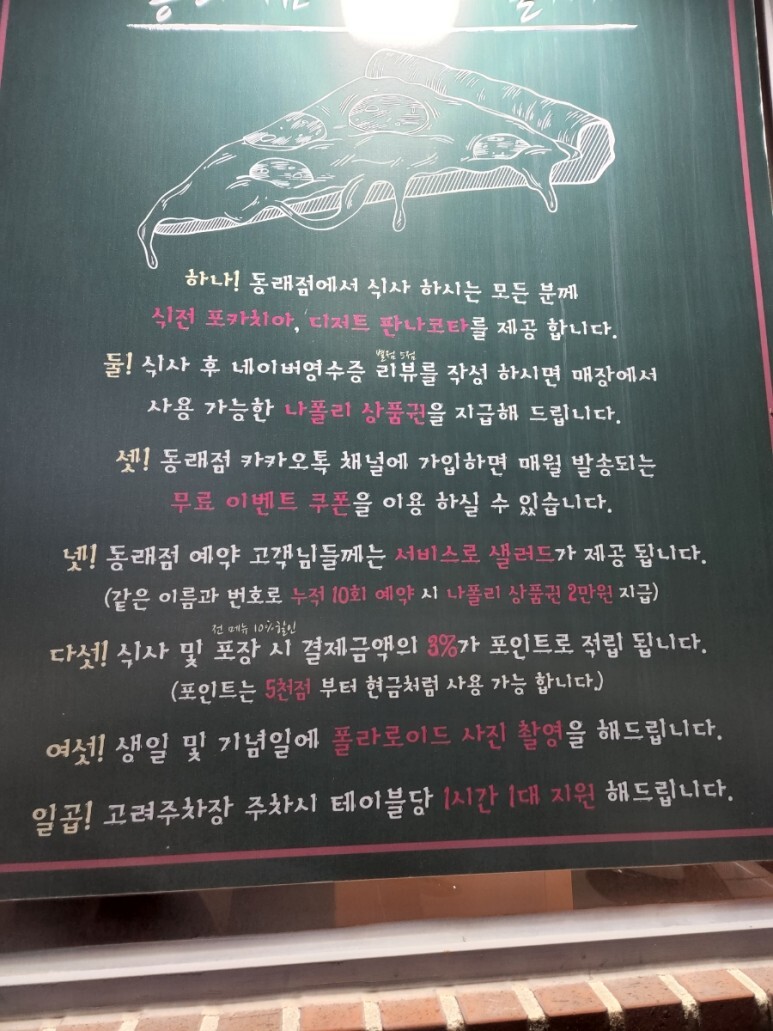 하나! 동래점에서 식사 하시는 모든 분께
식전 포카치아, 디저트 판나코타를 제공 합니다.
별점 5점
둘! 식사 후 네이버영수증 리뷰를 작성 하시면 매장에서
사용 가능한 나폴리 상품권을 지급해 드립니다.
셋! 동래점 카카오톡 채널에 가입하면 매월 발송되는
무료 이벤트 쿠폰을 이용 하실 수 있습니다.
넷! 동래점 예약 고객님들께는 서비스로 샐러드가 제공 됩니다.
(같은 이름과 번호로 누적 10회 예약 시 나폴리 상품권 2만원 지급)
전 메뉴 10% 할인
다섯! 식사 및 포장 시 결제금액의 3%가 포인트로 적립 됩니다.
(포인트는 5천점 부터 현금처럼 사용 가능 합니다.)
여섯! 생일 및 기념일에 폴라로이드 사진 촬영을 해드립니다.
일곱! 고려주차장 주차시 테이블당 1시간 1대 지원 해드립니다.